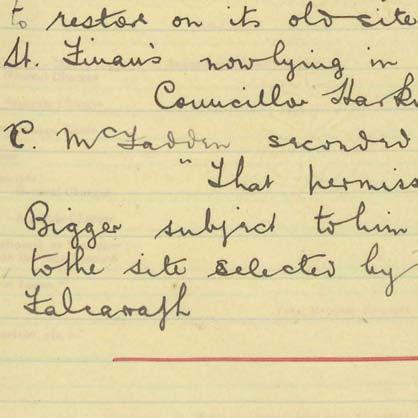 to restore on its old site
St. Finan's now lying in
Councillor Hark
C. McFadden seconded
"That permiss
Bigger subject to him
to the site selected by
Falcarragh